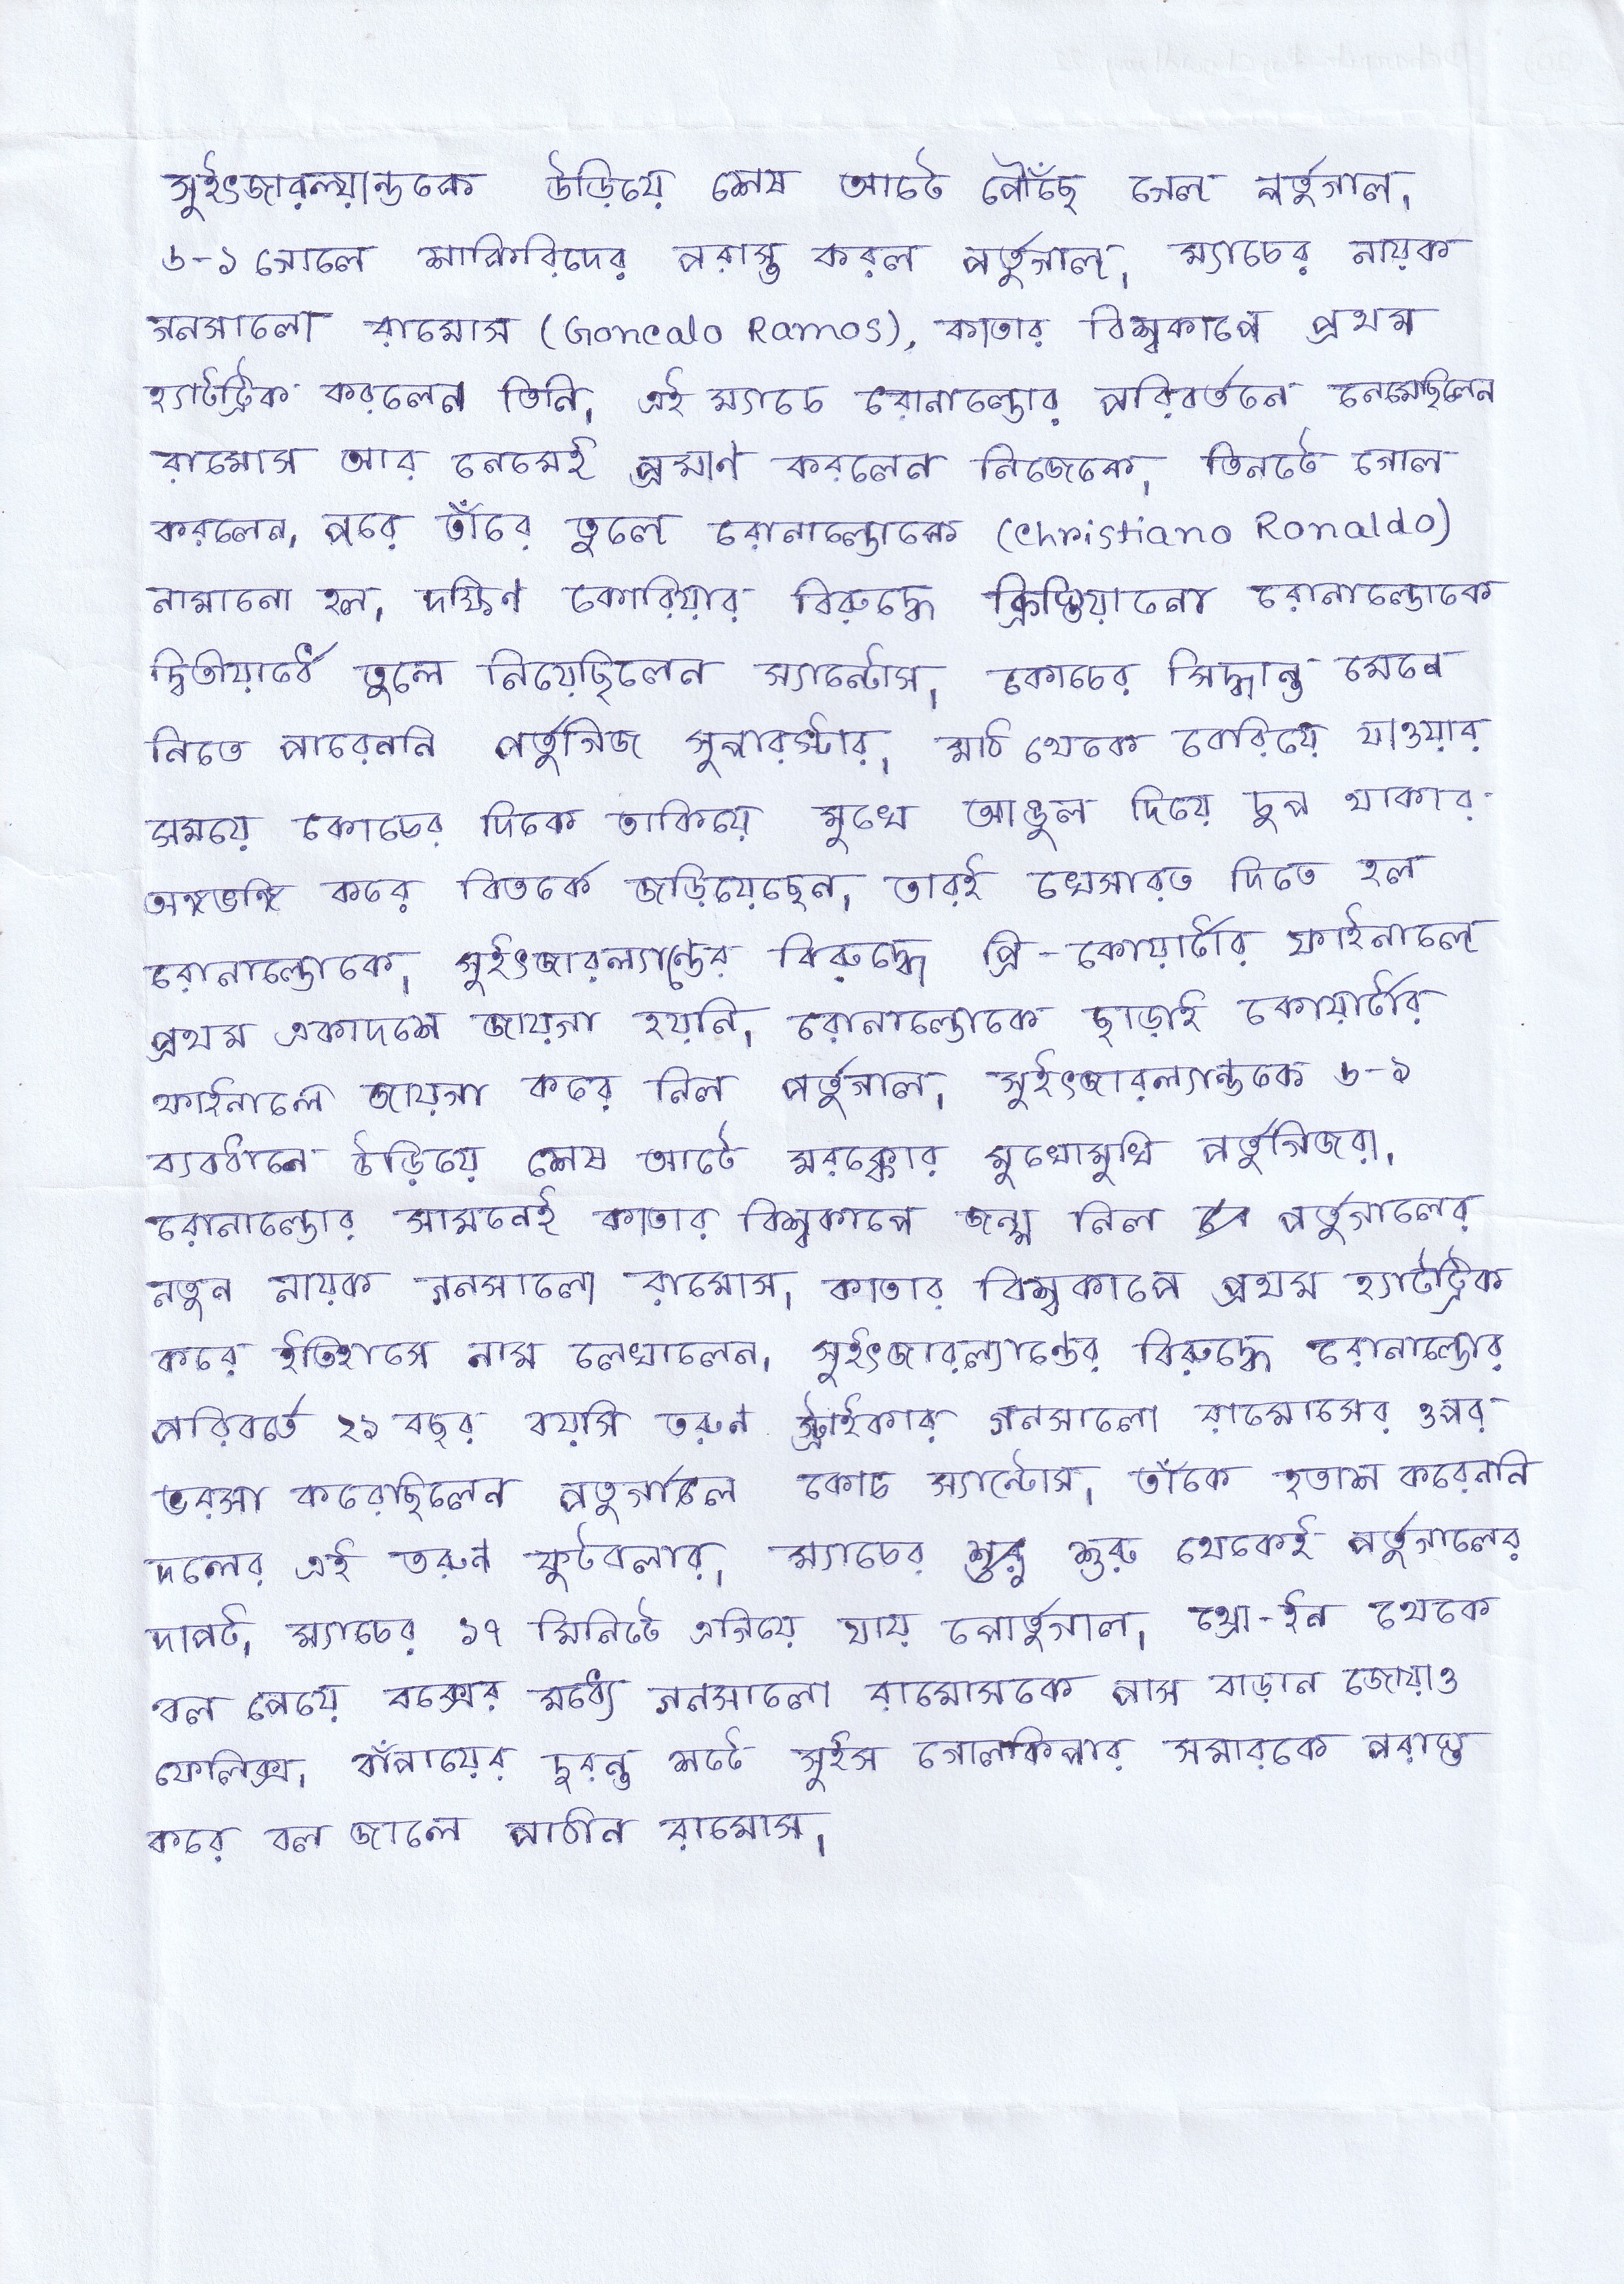 সুইৎজারল্যান্ডকে উড়িয়ে শেষ আটে পৌঁছে গেল পর্তুগাল।
৬-১ গোলে শাকিরিদের পরাস্ত করল পর্তুগাল। ম্যাচের নায়ক
গনসালো রামোস (Goncalo Ramos), কাতার বিশ্বকাপে প্রথম
হ্যাটট্রিক করলেন তিনি। এই ম্যাচে রোনাল্ডোর পরিবর্তনে নেমেছিলেন
রামোস আর নেমেই প্রমাণ করলেন নিজেকে। তিনটে গোল
করলেন, পরে তাঁরে তুলে রোনাল্ডোকে (Christiano Ronaldo)
নামানো হল। দক্ষিণ কোরিয়ার বিরুদ্ধে ক্রিস্তিয়ানো রোনাল্ডোকে
দ্বিতীয়ার্ধে তুলে নিয়েছিলেন স্যান্টোস। কোচের সিদ্ধান্ত মেনে
নিতে পারেননি পর্তুগিজ সুপারস্টার। মাঠ থেকে বেরিয়ে যাওয়ার
সময়ে কোচের দিকে তাকিয়ে মুখে আঙুল দিয়ে চুপ থাকার
অঙ্গভঙ্গি করে বিতর্কে জড়িয়েছেন। তারই খেসারত দিতে হল
রোনাল্ডোকে। সুইৎজারল্যান্ডের বিরুদ্ধে প্রি-কোয়ার্টার ফাইনালে
প্রথম একাদশে জায়গা হয়নি। রোনাল্ডোকে ছাড়াই কোয়ার্টার
ফাইনালে জায়গা করে নিল পর্তুগাল। সুইৎজারল্যান্ডকে ৬-১
ব্যবধানে উড়িয়ে শেষ আটে মরক্কোর মুখোমুখি পর্তুগিজরা।
রোনাল্ডোর সামনেই কাতার বিশ্বকাপে জন্ম নিল পর্তুগালের
নতুন নায়ক গনসালো রামোস। কাতার বিশ্বকাপে প্রথম হ্যাটট্রিক
করে ইতিহাসে নাম লেখালেন। সুইৎজারল্যান্ডের বিরুদ্ধে রোনাল্ডোর
পরিবর্তে ২১ বছর বয়সি তরুণ স্ট্রাইকার গনসালো রামোসের ওপর
ভরসা করেছিলেন পতুর্গালে কোচ স্যান্টোস। তাঁকে হতাশ করেননি
দলের এই তরুণ ফুটবলার। ম্যাচের শুরু থেকেই পর্তুগালের
দাপট। ম্যাচের ১৭ মিনিটে এগিয়ে যায় পোর্তুগাল। থ্রো-ইন থেকে
বল পেয়ে বক্সের মধ্যে গনসালো রামোসকে পাস বাড়ান জোয়াও
ফেলিক্স। বাঁপায়ের দুরন্ত শটে সুইস গোলকিপার সমারকে পরাস্ত
করে বল জালে পাঠান রামোস।